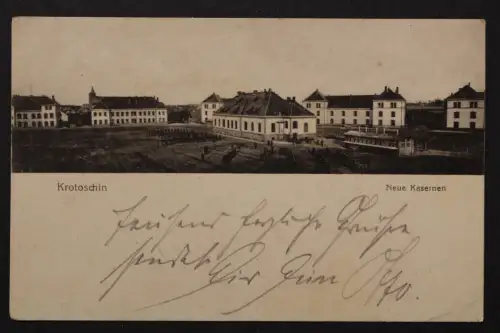 Krotoschin
Neue Kasernen
Tausend herzliche Grüße
sendet Dir Dein Otto.